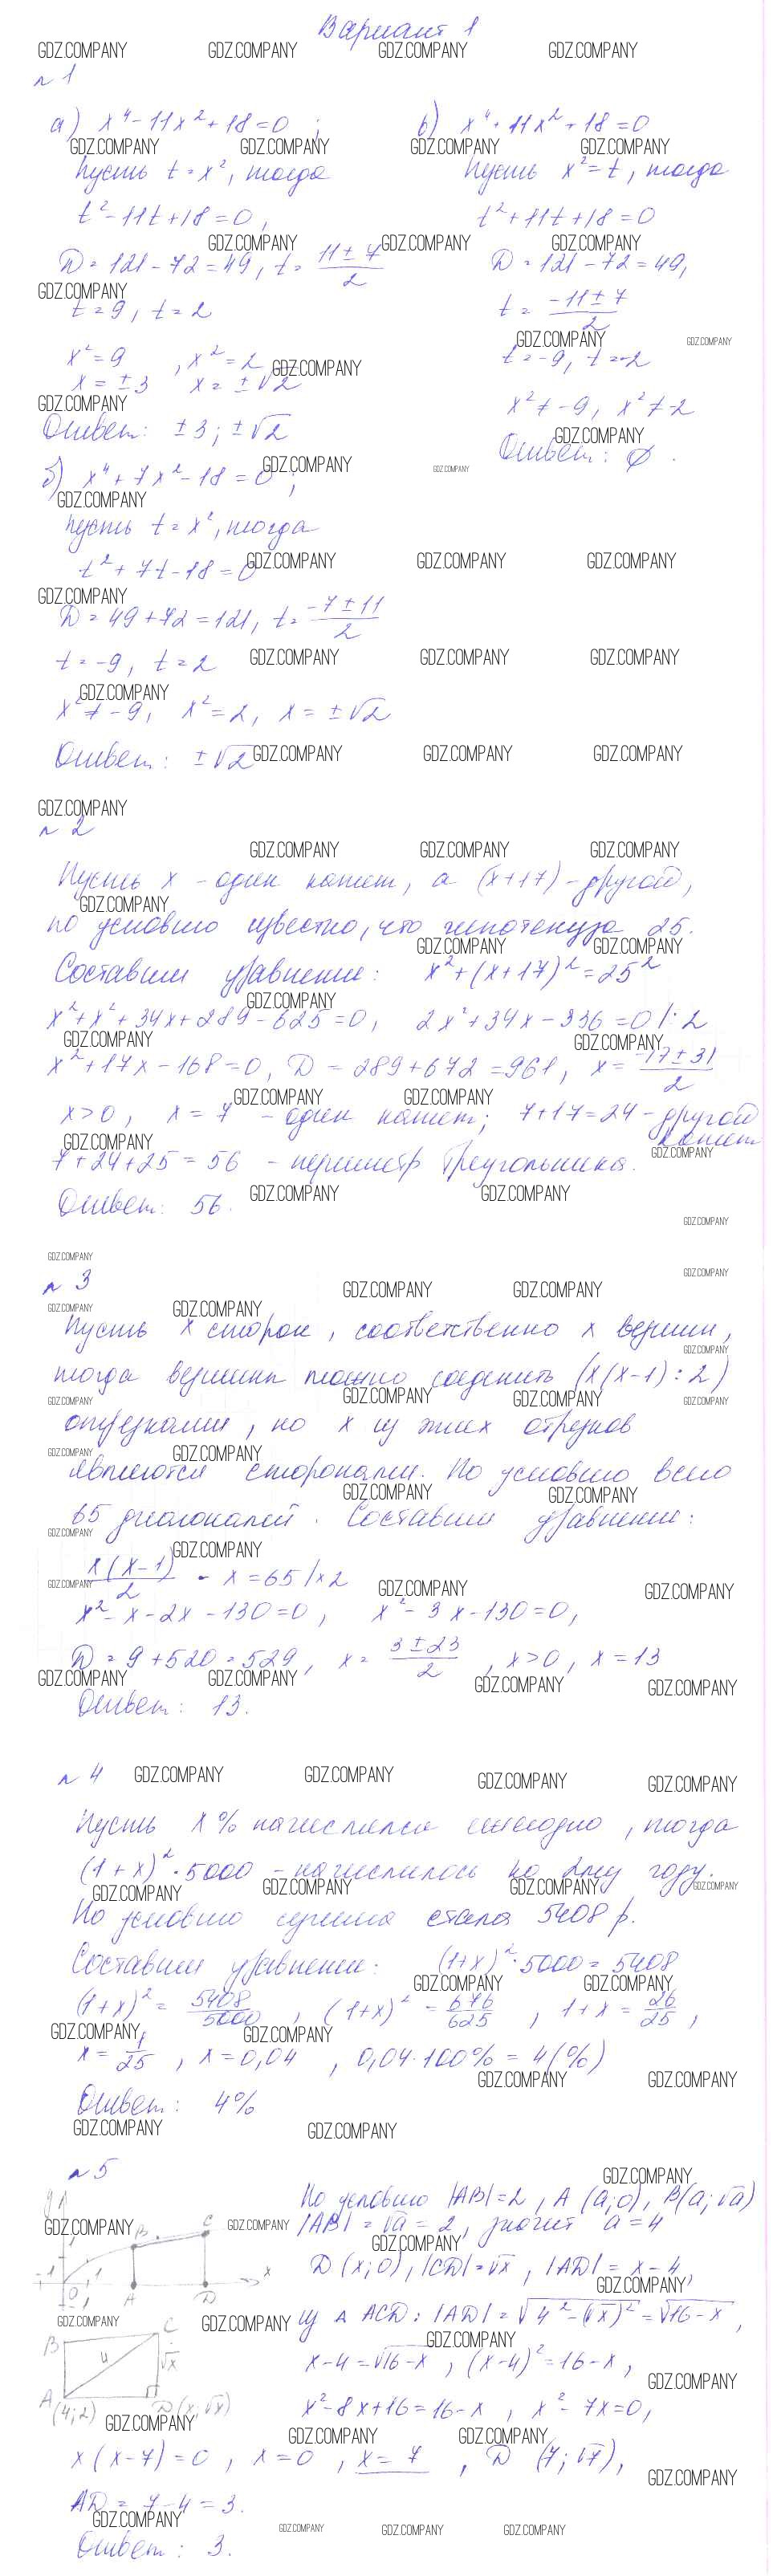 Вариант 1
№1
а) x⁴-11x²+18=0 ;
Пусть t=x², тогда
t²-11t+18=0,
D=121-72=49, t=(11±7)/2
t=9, t=2
x²=9 , x²=2
x=±3 x=±√2
Ответ: ±3; ±√2
б) x⁴+7x²-18=0 ;
Пусть t=x², тогда
t²+7t-18=0
D=49+72=121, t=(-7±11)/2
t=-9, t=2
x²≠-9, x²=2, x=±√2
Ответ: ±√2
в) x⁴+11x²+18=0
Пусть x²=t, тогда
t²+11t+18=0
D=121-72=49,
t=(-11±7)/2
t=-9, t=-2
x²≠-9, x²≠-2
Ответ: ∅.
№2
Пусть x - один катет, а (x+17) - другой,
по условию известно, что гипотенуза 25.
Составим уравнение: x²+(x+17)²=25²
x²+x²+34x+289-625=0, 2x²+34x-336=0 |:2
x²+17x-168=0, D=289+672=961, x=(-17±31)/2
x>0, x=7 - один катет; 7+17=24 - другой катет
7+24+25=56 - периметр треугольника.
Ответ: 56.
№3
Пусть x сторон, соответственно x вершин,
тогда вершины можно соединить (x(x-1):2)
отрезками, но x из этих отрезков
являются сторонами. По условию всего
65 диагоналей. Составим уравнение:
x(x-1)/2 - x=65 |×2
x²-x-2x-130=0, x²-3x-130=0,
D=9+520=529, x=(3±23)/2, x>0, x=13
Ответ: 13.
№4
Пусть x% начислялся ежегодно, тогда
(1+x)²·5000 - начислилось ко 2му году.
По условию сумма стала 5408 р.
Составим уравнение: (1+x)²·5000=5408
(1+x)²=5408/5000, (1+x)²=676/625, 1+x=26/25,
x=1/25, x=0,04, 0,04·100%=4(%)
Ответ: 4%
№5
По условию |AB|=2, A(a;0), B(a;√a)
|AB|=√a=2, значит a=4
D(x;0), |CD|=√x, |AD|=x-4,
из △ACD: |AD|=√(4²-(√x)²)=√(16-x),
x-4=√(16-x), (x-4)²=16-x,
x²-8x+16=16-x, x²-7x=0,
x(x-7)=0, x=0, x=7, D(7;√7),
AD=7-4=3.
Ответ: 3.
y
1
B
C
x
-1
0
1
A
D
B
C
4
√x
A
(4;2)
D(x;√x)
GDZ.COMPANY